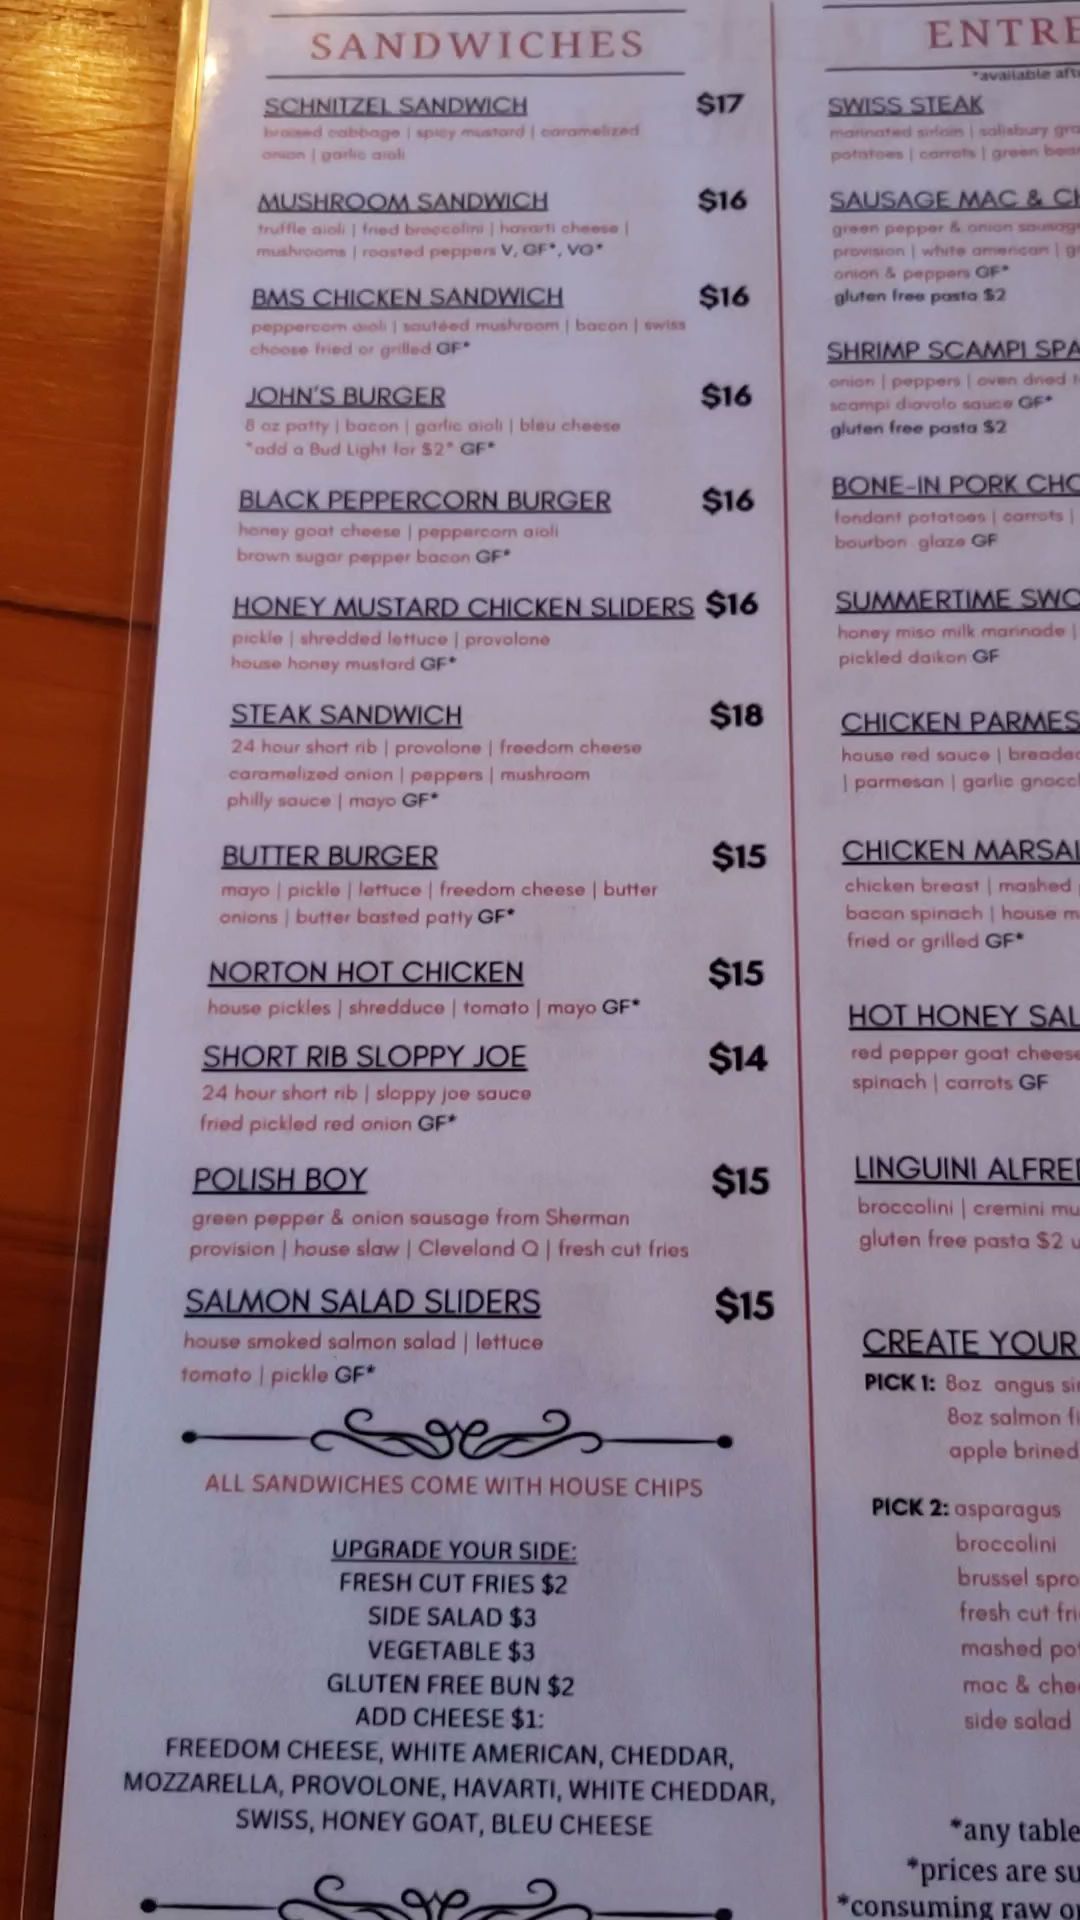 SANDWICHES
SCHNITZEL SANDWICH $17
braised cabbage | spicy mustard | caramelized
onion | garlic aioli
MUSHROOM SANDWICH $16
truffle aioli | fried broccolini | havarti cheese |
mushrooms | roasted peppers V, GF*, VG*
BMS CHICKEN SANDWICH $16
peppercorn aioli | sautéed mushroom | bacon | swiss
choose fried or grilled GF*
JOHN'S BURGER $16
8 oz patty | bacon | garlic aioli | bleu cheese
*add a Bud Light for $2* GF*
BLACK PEPPERCORN BURGER $16
honey goat cheese | peppercorn aioli
brown sugar pepper bacon GF*
HONEY MUSTARD CHICKEN SLIDERS $16
pickle | shredded lettuce | provolone
house honey mustard GF*
STEAK SANDWICH $18
24 hour short rib | provolone | freedom cheese
caramelized onion | peppers | mushroom
philly sauce | mayo GF*
BUTTER BURGER $15
mayo | pickle | lettuce | freedom cheese | butter
onions | butter basted patty GF*
NORTON HOT CHICKEN $15
house pickles | shredduce | tomato | mayo GF*
SHORT RIB SLOPPY JOE $14
24 hour short rib | sloppy joe sauce
fried pickled red onion GF*
POLISH BOY $15
green pepper & onion sausage from Sherman
provision | house slaw | Cleveland Q | fresh cut fries
SALMON SALAD SLIDERS $15
house smoked salmon salad | lettuce
tomato | pickle GF*
ALL SANDWICHES COME WITH HOUSE CHIPS
UPGRADE YOUR SIDE:
FRESH CUT FRIES $2
SIDE SALAD $3
VEGETABLE $3
GLUTEN FREE BUN $2
ADD CHEESE $1:
FREEDOM CHEESE, WHITE AMERICAN, CHEDDAR,
MOZZARELLA, PROVOLONE, HAVARTI, WHITE CHEDDAR,
SWISS, HONEY GOAT, BLEU CHEESE
ENTRE
*available aft
SWISS STEAK
marinated sirloin | salisbury gra
potatoes | carrots | green bean
SAUSAGE MAC & CH
green pepper & onion sausag
provision | white american | g
onion & peppers GF*
gluten free pasta $2
SHRIMP SCAMPI SPA
onion | peppers | oven dried t
scampi diavolo sauce GF*
gluten free pasta $2
BONE-IN PORK CHO
fondant potatoes | carrots |
bourbon glaze GF
SUMMERTIME SWO
honey miso milk marinade |
pickled daikon GF
CHICKEN PARMES
house red sauce | breaded
| parmesan | garlic gnocch
CHICKEN MARSAL
chicken breast | mashed
bacon spinach | house m
fried or grilled GF*
HOT HONEY SAL
red pepper goat cheese
spinach | carrots GF
LINGUINI ALFRE
broccolini | cremini mu
gluten free pasta $2
CREATE YOUR
PICK 1: 8oz angus si
8oz salmon fi
apple brined
PICK 2: asparagus
broccolini
brussel spro
fresh cut fri
mashed po
mac & che
side salad
*any table
*prices are su
*consuming raw or